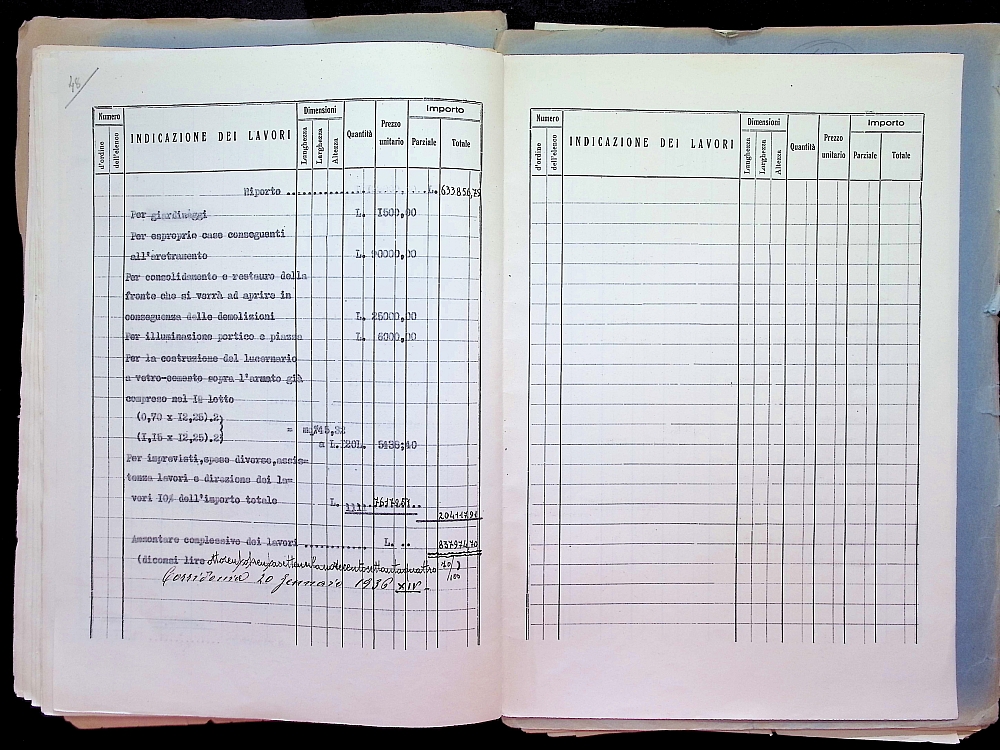 48
Numero
d'ordine
dell'elenco
INDICAZIONE DEI LAVORI
Dimensioni
Lunghezza
Larghezza
Altezza
Quantità
Prezzo unitario
Importo
Parziale
Totale
Riporto .................. L. 633856,79
Per giardinaggi L. 1500,00
Per esproprio case conseguenti
all'aretramento L. 90000,00
Per consolidamento e restauro della
fronte che si verrà ad aprire in
conseguenza delle demolizioni L. 25000,00
Per illuminazione portico e piazza L. 6000,00
Per la costruzione del lucernario
a vetro-cemento sopra l'armato già
compreso nel I° lotto
(0,70 x I2,25).2)
(I,I5 x I2,25).2) = mq. 45,32
a L. 120 L. 5438,40
Per imprevisti,spese diverse,assis=
tenza lavori e direzione dei la=
vori I0% dell'importo totale L. 76179,51
204117,91
Ammontare complessivo dei lavori .......... L. .. 837974,70
(diconsi lire 70/100)
Corridonia 20 Gennaio 1936 XIV -
Numero
d'ordine
dell'elenco
INDICAZIONE DEI LAVORI
Dimensioni
Lunghezza
Larghezza
Altezza
Quantità
Prezzo unitario
Importo
Parziale
Totale